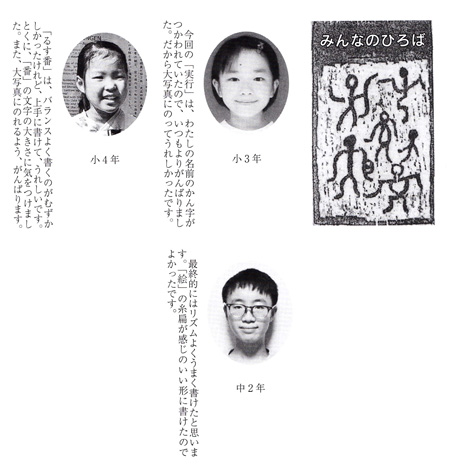 みんなのひろば
小3年
今回の「実行」は、わたしの名前のかん字が
つかわれていたので、いつもよりがんばりまし
た。だから大写真にのってうれしかったです。
小4年
「るす番」は、バランスよく書くのがむずか
しかったけれど、上手に書けて、うれしいです。
とくに、「番」の文字の大きさに気をつけまし
た。また、大写真にのれるよう、がんばります。
中2年
最終的にはリズムよくうまく書けたと思いま
す。「絵」の糸扁が感じのいい形に書けたので
よかったです。